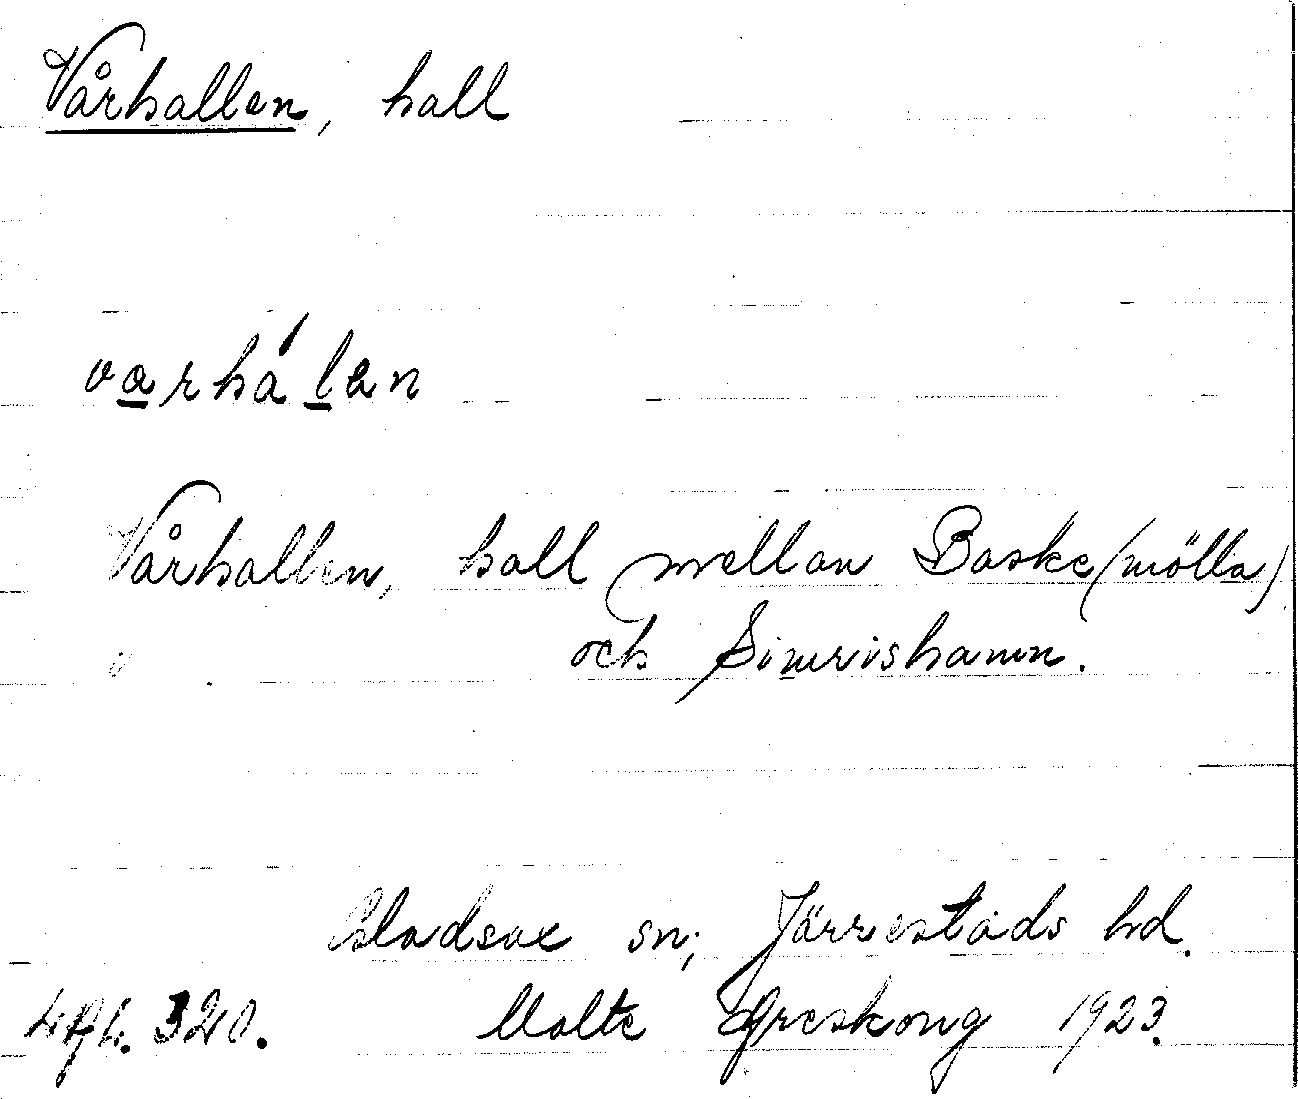 Vårhallen, hall
varhálen
Vårhallen, hall mellan Baske(mölla)
och Simrishamn.
Gladsax sn; Järrestads hd.
320. Malte 1923.